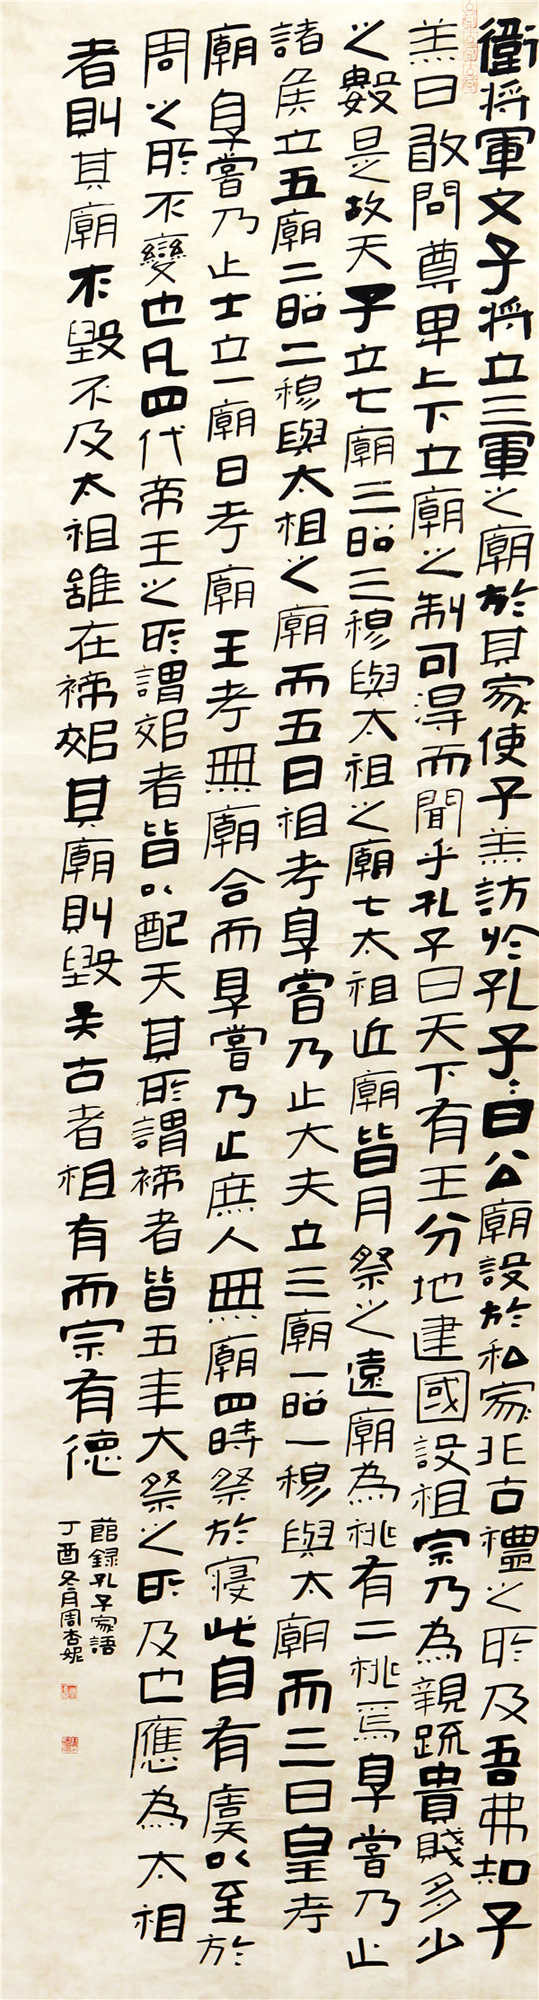 衞將軍文子將立三軍之廟於其家使子羔訪於孔子子曰公廟設於私家非古禮之所及吾弗知子
羔曰敢問尊卑上下立廟之制可得而聞乎孔子曰天下有王分地建國設祖宗乃為親疏貴賤多少
之數是故天子立七廟三昭三穆與太祖之廟七太祖近廟皆月祭之遠廟為祧有二祧焉享嘗乃止
諸侯立五廟二昭二穆與太祖之廟而五曰祖考享嘗乃止大夫立三廟一昭一穆與太廟而三曰皇考
廟享嘗乃止士立一廟曰考廟王考無廟合而享嘗乃止庶人無廟四時祭於寢此自有虞以至於
周之所不變也凡四代帝王之所謂郊者皆以配天其所謂禘者皆五年大祭之所及也應為太祖
者則其廟不毀不及太祖雖在禘郊其廟則毀矣古者祖有而宗有德
節錄孔子家語
丁酉冬月周杏妮